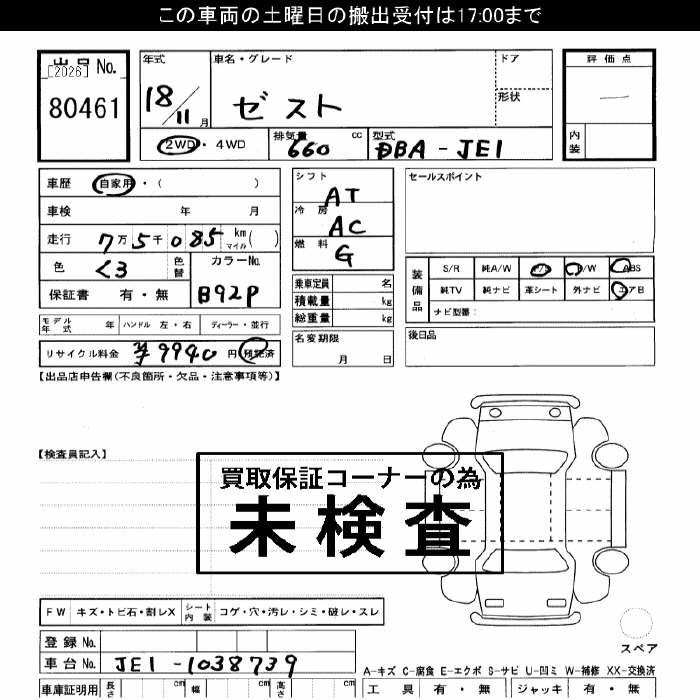 この車両の土曜日の搬出受付は17:00まで
出品No. [2026] 80461
年式 18/11月
車名・グレード ゼスト
ドア
形状
評価点 —
内装
2WD・4WD
排気量 660 cc
型式 DBA-JE1
車歴 自家用・( )
車検 年 月
走行 7万5千085 km マイル( )
色 くろ 色替
カラーNo. B92P
保証書 有・無
モデル年式 年 ハンドル 左・右 ディーラー・並行
リサイクル料金 ¥9940円 預託済
シフト AT
冷房 AC
燃料 G
乗車定員 名
積載量 kg
総重量 kg
名変期限 月 日
セールスポイント
装備品 S/R 純A/W P/S P/W ABS
純TV 純ナビ 革シート 外ナビ エアB
ナビ型番:
後日品
【出品店申告欄(不良箇所・欠品・注意事項等)】
【検査員記入】
買取保証コーナーの為
未検査
FW キズ・トビ石・割レX シート内装 コゲ・穴・汚レ・シミ・破レ・スレ
登録No.
車台No. JE1-1038739
スペア
A-キズ C-腐食 E-エクボ S-サビ U-凹ミ W-補修 XX-交換済
車庫証明用 長さ cm 幅 cm 高さ cm
工具 有・無 ジャッキ 有・無